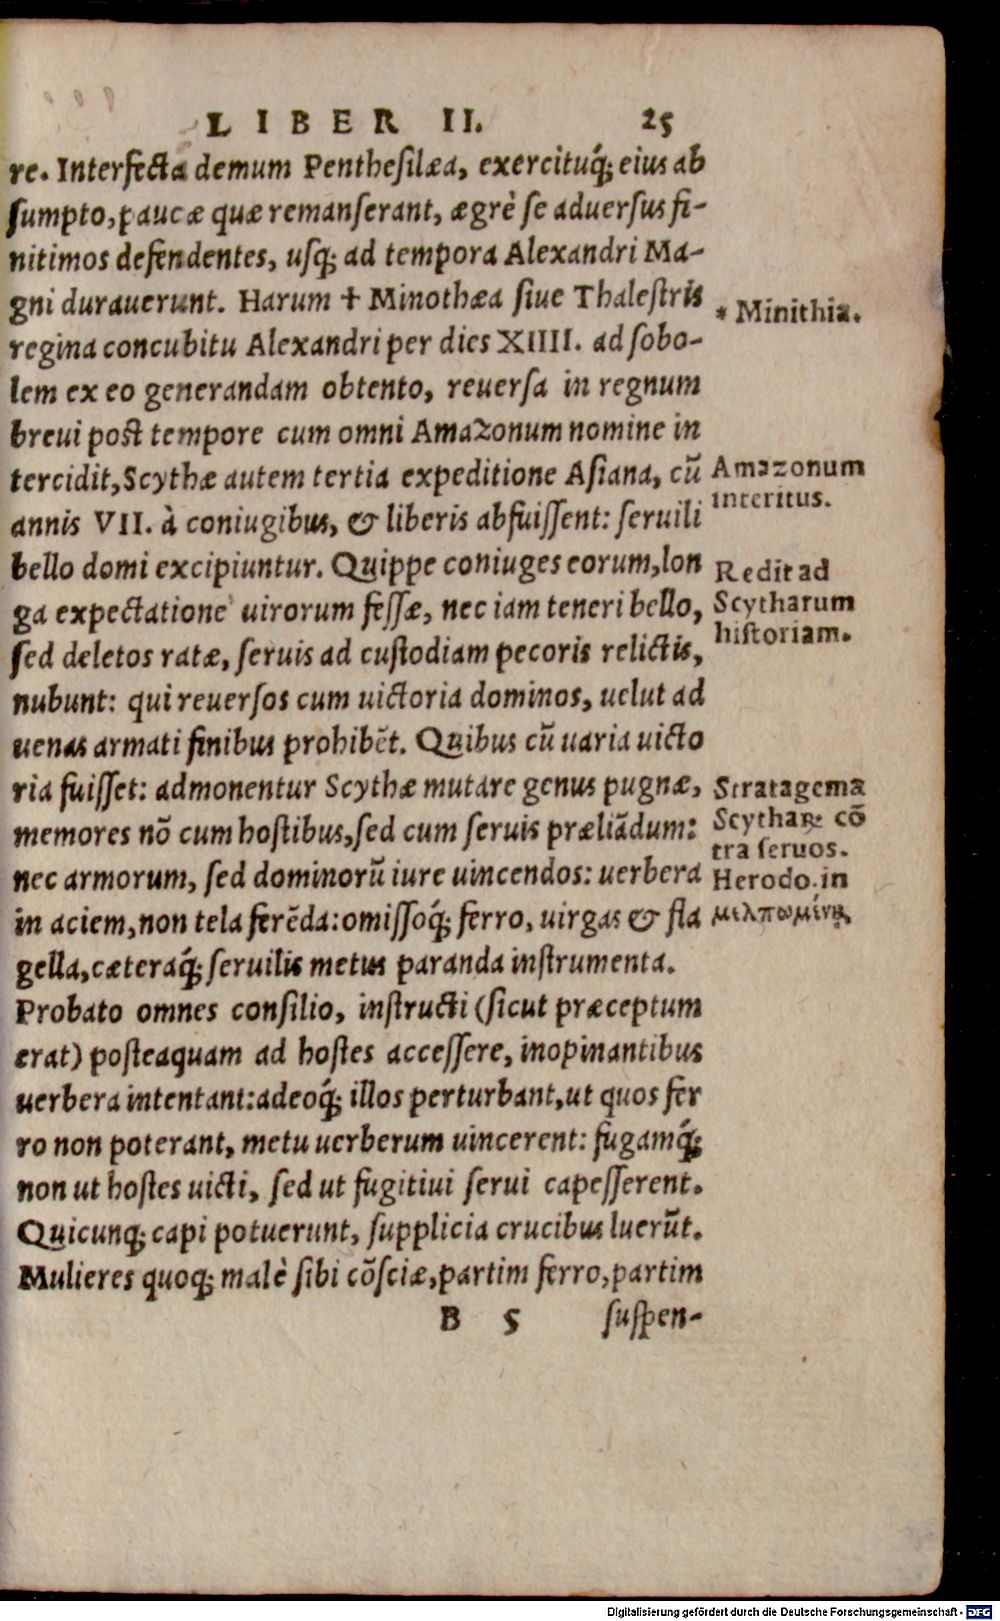 LIBER II. 25
re. Interfecta demum Penthesilæa, exercituq́; eius ab
ſumpto, paucæ quæ remanſerant, ægrè ſe aduerſus fi-
nitimos defendentes, uſq; ad tempora Alexandri Ma-
gni durauerunt. Harum + Minothæa ſiue Thaleſtris
* Minithia.
regina concubitu Alexandri per dies XIIII. ad ſobo-
lem ex eo generandam obtento, reuerſa in regnum
breui post tempore cum omni Amazonum nomine in
tercidit, Scythæ autem tertia expeditione Aſiana, cũ
Amazonum
interitus.
annis VII. à coniugibus, & liberis abfuiſſent: ſeruili
bello domi excipiuntur. Quippe coniuges eorum, lon
Redit ad
Scytharum
hiſtoriam.
ga expectatione uirorum feſſæ, nec iam teneri bello,
ſed deletos ratæ, ſeruis ad cuſtodiam pecoris relictis,
nubunt: qui reuerſos cum uictoria dominos, uelut ad
uenas armati finibus prohibẽt. Quibus cũ uaria uicto
ria fuiſſet: admonentur Scythæ mutare genus pugnæ,
Stratagema
Scythaꝝ cõ
tra ſeruos.
Herodo. in
μελπωμένῃ.
memores nõ cum hoſtibus, ſed cum ſeruis præliãdum:
nec armorum, ſed dominorũ iure uincendos: uerbera
in aciem, non tela ferẽda: omiſſoq́; ferro, uirgas & fla
gella, cæteraq́; ſeruilis metus paranda inſtrumenta.
Probato omnes conſilio, inſtructi (ſicut præceptum
erat) poſteaquam ad hoſtes acceſſere, inopinantibus
uerbera intentant: adeoq́; illos perturbant, ut quos fer
ro non poterant, metu uerberum uincerent: fugamq́;
non ut hoſtes uicti, ſed ut fugitiui ſerui capeſſerent.
Quicunq; capi potuerunt, ſupplicia crucibus luerũt.
Mulieres quoq; malè ſibi cõſciæ, partim ferro, partim
B 5 ſuſpen-
Digitalisierung gefördert durch die Deutsche Forschungsgemeinschaft - DFG